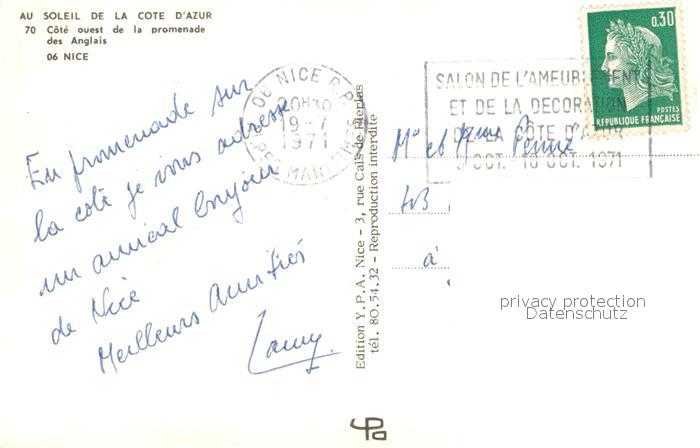 AU SOLEIL DE LA COTE D'AZUR
70 Côté ouest de la promenade
des Anglais
06 NICE
En promenade sur
la côte je vous adresse
un amical bonjour
de Nice
Meilleurs Amitiés
06 NICE R.P.
20H30
19-7
1971
ALPES MARITIMES
SALON DE L'AMEUBLEMENT
ET DE LA DECORATION
DE LA CÔTE D'AZUR
9 OCT. 18 OCT. 1971
0,30
POSTES
REPUBLIQUE FRANÇAISE
Mr et Mme
à
Edition Y.P.A. Nice - 3, rue Caïs de Pierlas
tél. 80.54.32 - Reproduction interdite
privacy protection
Datenschutz